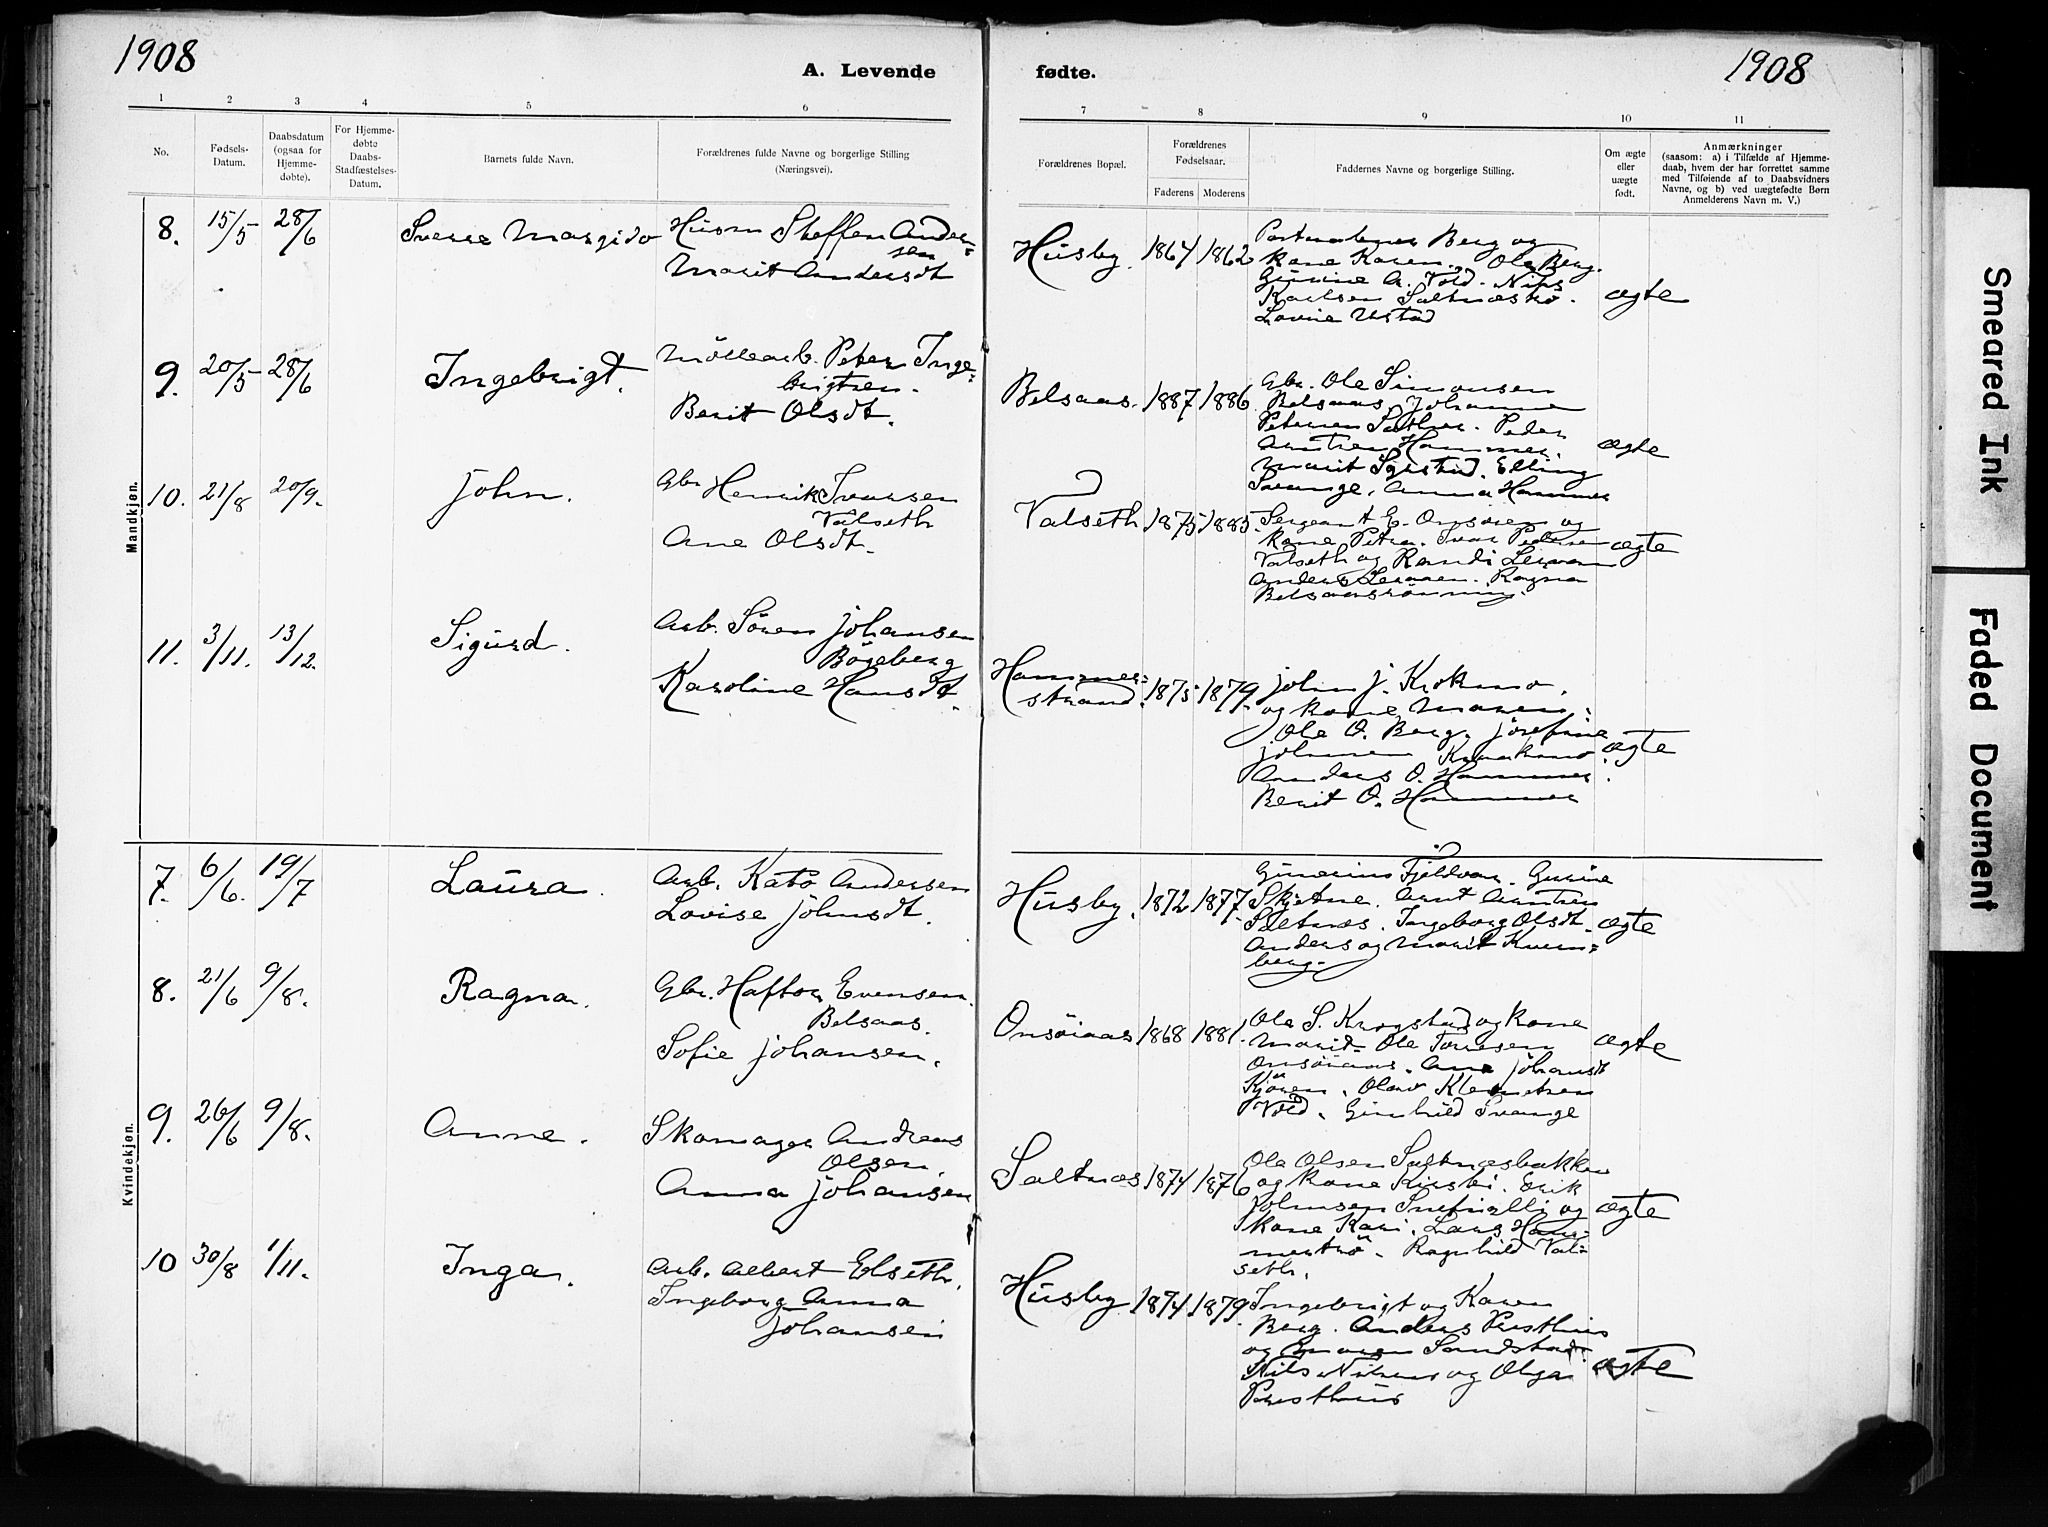 1908
A. Levende
fødte.
1908
1 2 3 4 5 6 7 8 9 10 11
No.
Fødsels-
Datum.
Daabsdatum
(ogsaa for
Hjemme-
døbte).
For Hjemme-
døbte
Daabs-
Stadfæstelses-
Datum.
Barnets fulde Navn.
Forældrenes fulde Navne og borgerlige Stilling
(Næringsvei).
Forældrenes Bopæl.
Forældrenes
Fødselsaar.
Faderens Moderens
Faddernes Navne og borgerlige Stilling.
Om ægte
eller
uægte
født.
Anmærkninger
(saasom: a) i Tilfælde af Hjemme-
daab, hvem der har forrettet samme
med Tilføiende af to Daabsvidners
Navne, og b) ved uægtefødte Børn
Anmelderens Navn m. V.)
Mandkjøn.
8. 15/5 28/6 Sverre Margido
Husm Steffen Ander-
sen
Marit Andersdt
Husby. 1864 1862
Berg og
Kone Karen. Ola Berg.
Gurine A. Vold. Nils
Karlsen Saltnæstrø.
Lovise Ustad
ægte
9. 20/5 28/6 Ingebrigt.
Möllearb. Peter Inge-
brigtsen.
Berit Olsdt.
Belsaas. 1887 1886
Gbr. Ole Simonsen
Belsaas, Johanna
Petersen Sæther. Peder
Arntsen Hammer.
Marit Elling
Svange. Anna Hammer
ægte
10. 21/8 20/9. John.
Gbr Henrik Ivarsen
Valseth
Ane Olsdt.
Valseth 1875 1885
Sergeant E. Onsöien og
Kone Petra. Ivar Pedersen
Valseth og Randi
Anders Ragna
Belsaasrönning.
ægte
11. 3/11. 13/12. Sigurd.
Arb. Sören Johansen
Bögeberg
Karoline Hansdt.
Hammer-
strand. 1875 1879.
John J. Krokmo.
og Kone Maren.
Ole O. Berg. Josefine
Johnsen
Anders O. Hammer.
Berit O. Hammer
ægte
Kvindekjøn.
7. 6/6. 19/7 Laura.
Arb. Kato Andersen
Lovise Johnsdt.
Husby. 1872 1877.
Gunerius Fjeldvær. Gurine
Skjetne. Arnt Arntsen
Saltnæs. Ingeborg Olsdt.
Anders og Marit Kvern-
berg.
ægte
8. 21/6 9/8. Ragna.
Gbr. Haftor Evensen.
Belsaas.
Sofie Johansen.
Onsöiaas 1868 1881.
Ole S. Krogstad og Kone
Marit. Ole Toresen
Onsöiaas. Ane Johansdt
Kjören. Olav Klemetsen
Vold. Gunhild Svange
ægte
9. 26/6 9/8. Anne.
Skomager Andreas
Olsen.
Anna Johansen
Saltnæs 1874 1876
Ole Olsen Saltnæsbakken
og Kone Kirsti. Erik
Johnsen og
Kone Kari. Lars Ham-
mertrö. Ragnhild Val-
seth.
ægte
10 30/8 1/11. Inga.
Arb. Albert Elseth.
Ingeborg Anna
Johansen
Husby. 1874. 1879.
Ingebrigt og Karen
Berg. Anders Presthus
og Maren Sandstad.
Nils Nilsen og Olga
Presthus
ægte
Smeared Ink
Faded Document